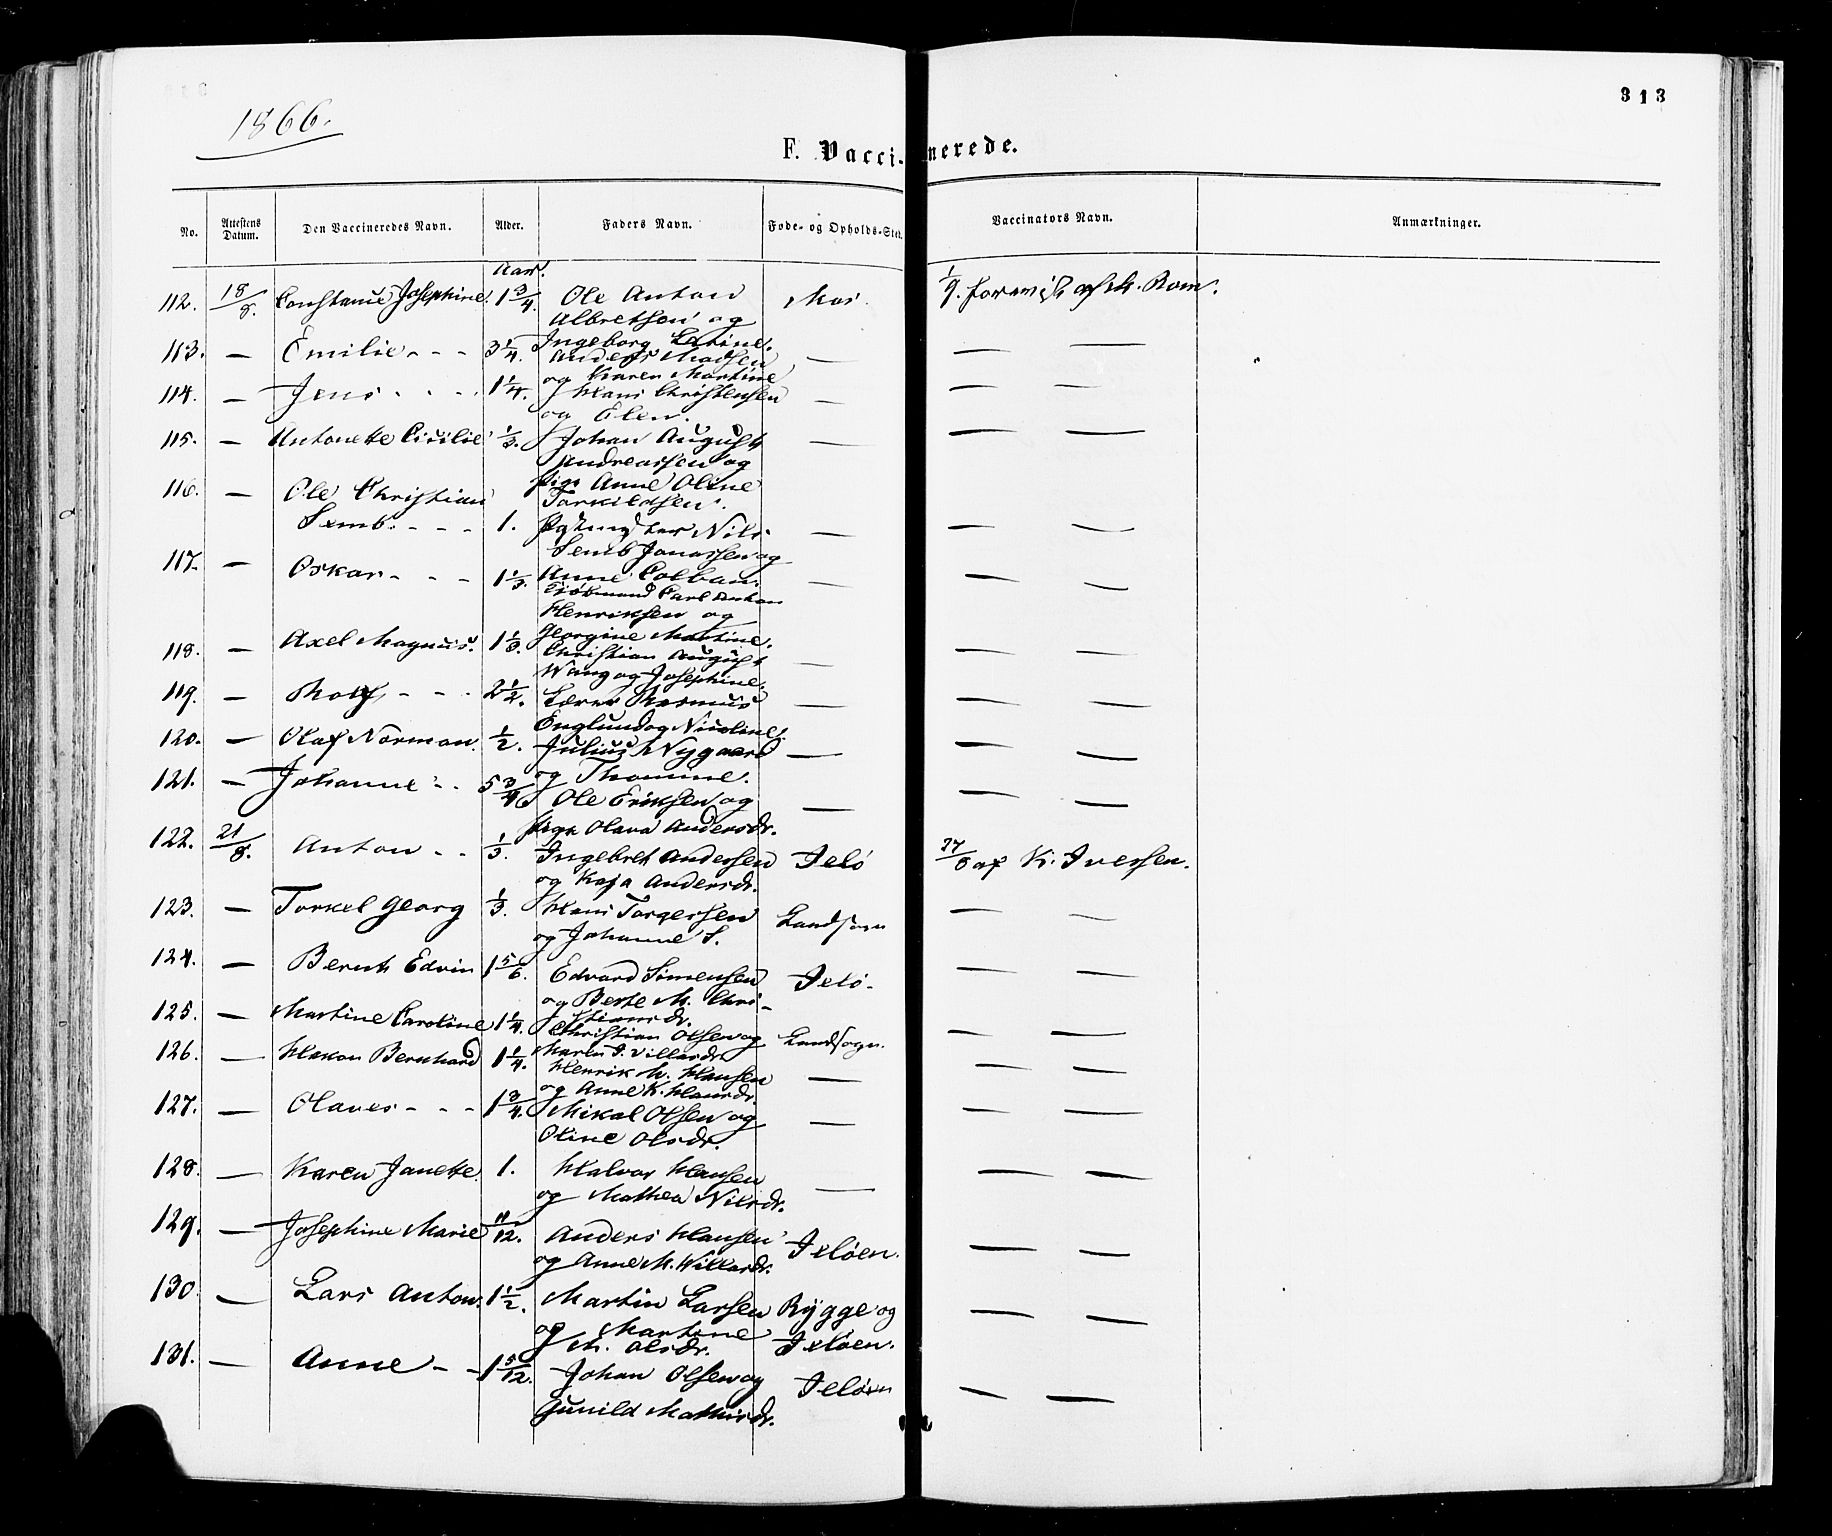 313
1866.
F. Vaccinerede.
No. Attestens Datum. Den Vaccineredes Navn. Alder. Faders Navn. Føde- og Opholds-Sted. Vaccinators Navn. Anmærkninger.
Aar.
112. 18/8. Constance Josephine. 1 3/4. Ole Anton Mos.
Albretsen og
113. — Emilie - - - 3 1/4. Ingeborg — — —
Anders Madsen
og Karen Martine
114. — Jens - - - 1 1/4. Hans Christensen — — —
og Elen.
115. — Antonette Cicilie 1/3. Johan August — — —
Andreassen og
pige Anne Oline
116. — Ole Christian Torkildsen.
Semb. - - - 1. Nils — — —
Semb Jonassen og
117. — Oskar - - - 1 1/3. Anne Colban. — — —
Sjömand Carl Anton
Henriksen og
118. — Axel Magnus. 1 1/3. Georgine Martine. — — —
Christian August
Wang og Josephine.
119. — Rolf - - - 2 1/2. Lærer Rasmus — — —
Englund og Nicoline.
120. — Olaf Norman. 1/2. Julius Nygaard — — —
og Thomine.
121. — Johanne - - 5 3/4. Ole Eriksen og — — —
pige Olava Andersdr.
122. 21/8. Anton - - 1/3. Ingebret Andersen Jelö af K. Iversen.
og Kaja Andersdr.
123. — Torkel Georg 1/3. Hans Torgersen Landsogn — —
og Johanne S.
124. — Bernth Edvin 1 5/6. Edvard Simensen Jelö. — —
og Berte M. Chri-
stiansdr.
125. — Martine Caroline 1 1/4. Christian Olsen og Landsogn. — —
Maren J. Villasdr.
126. — Hakon Bernhard 1 1/4. Henrik M. Hansen — — —
og Anne K. Hansdr.
127. — Olaves - - - 1 3/4. Mikal Olsen og — — —
Oline Olsdr.
128. — Karen Janette. 1. Halvor Hansen — — —
og Mathea Nilsdr.
129. — Josephine Marie 11/12. Anders Hansen Jelöen. — —
og Anne M. Willasdr.
130. — Lars Anton. 1 1/2. Martin Larsen Rygge og — —
og Martine Jelöen.
M. Olsdr.
131. — Anne - - 1 5/12. Johan Olsen og Jelöen — —
Gunild Mathisdr.